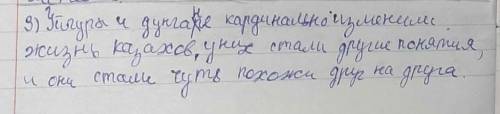 3) Уйгуры и дунгане кардинально изменили
жизнь казахов, у них стали другие понятия,
и они стали чуть похожи друг на друга.